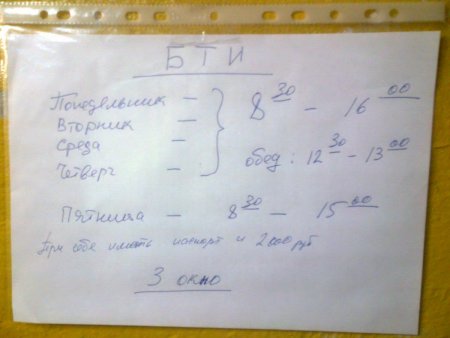 БТИ
Понедельник –
Вторник –
Среда –
Четверг –
8 30 – 16 00
обед: 12 30 – 13 00
Пятница – 8 30 – 15 00
При себе иметь паспорт и 2000 руб
3 окно